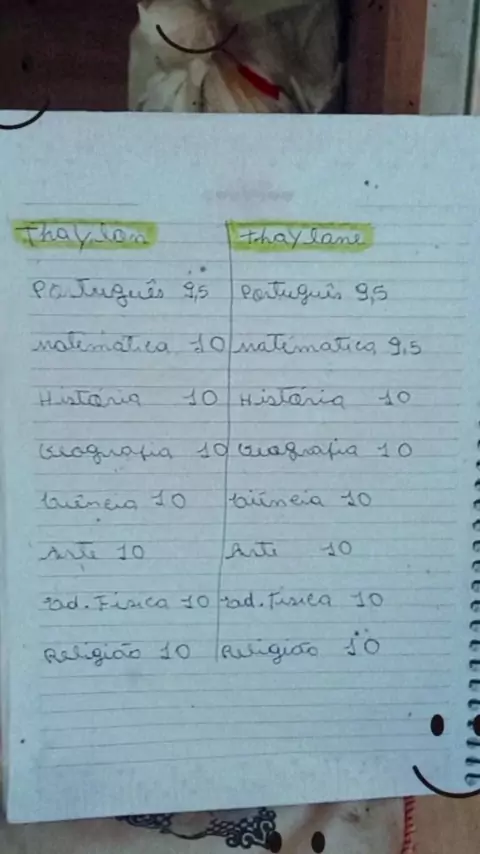 Thaylon thaylane
Português 9,5 Português 9,5
matemática 10 matematica 9,5
História 10 História 10
Geografia 10 Geografia 10
Ciência 10 Ciência 10
Arte 10 Arte 10
Ed. Física 10 Ed. Física 10
Religião 10 Religião 10